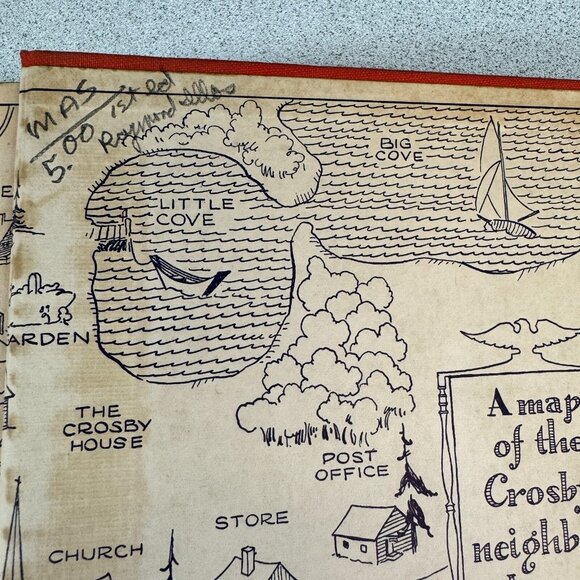 MAS
5.00
1st ed
Raymond
BIG
COVE
LITTLE
COVE
ARDEN
THE
CROSBY
HOUSE
POST
OFFICE
A map
of the
Crosby
neighb
STORE
CHURCH